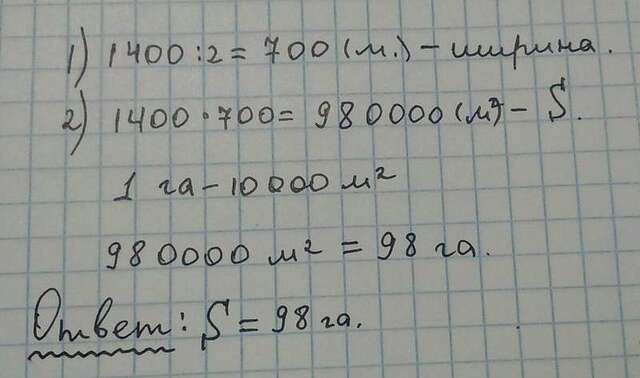 1) 1400:2=700(м.)-ширина.
2) 1400·700=980000(м²)-S.
1 га-10000 м²
980000 м²=98 га.
Ответ: S=98 га.